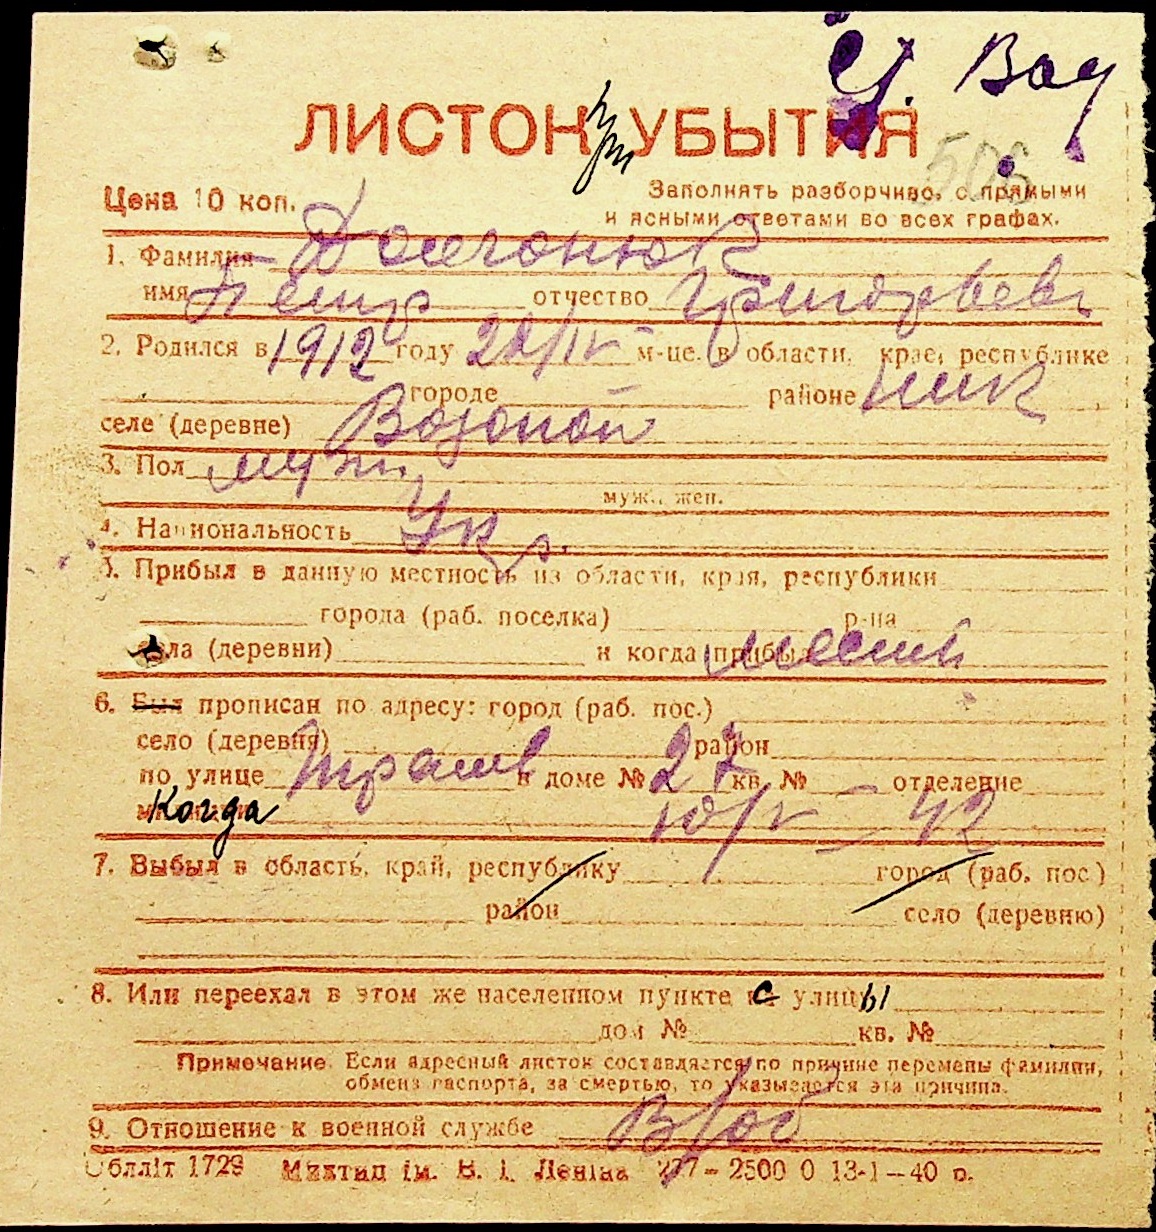 ЛИСТОК при УБЫТИЯ
506
Цена 10 коп. Заполнять разборчиво, с прямыми
и ясными ответами во всех графах.
1. Фамилия
имя Петр отчество Григорьев
2. Родился в 1912 году 20/IV м-це. в области, крае, республике
городе районе Ник
селе (деревне)
3. Пол муж.
муж., жен.
4. Национальность Укр.
5. Прибыл в данную местность из области, края, республики
города (раб. поселка) р-на
села (деревни) и когда прибыл местный
6. Был прописан по адресу: город (раб. пос.)
село (деревня) район
по улице в доме № 27 кв. № — отделение
Когда милиции 10/V — 42
7. Выбыл в область, край, республику город (раб. пос.)
район село (деревню)
8. Или переехал в этом же населенном пункте с улицы
дом № кв. №
Примечание. Если адресный листок составляется по причине перемены фамилии,
обмена паспорта, за смертью, то указывается эта причина.
9. Отношение к военной службе В/об
Обллiт 1729 Миктип iм. В. I. Ленiна 277 – 2500 0 13-1 – 40 р.